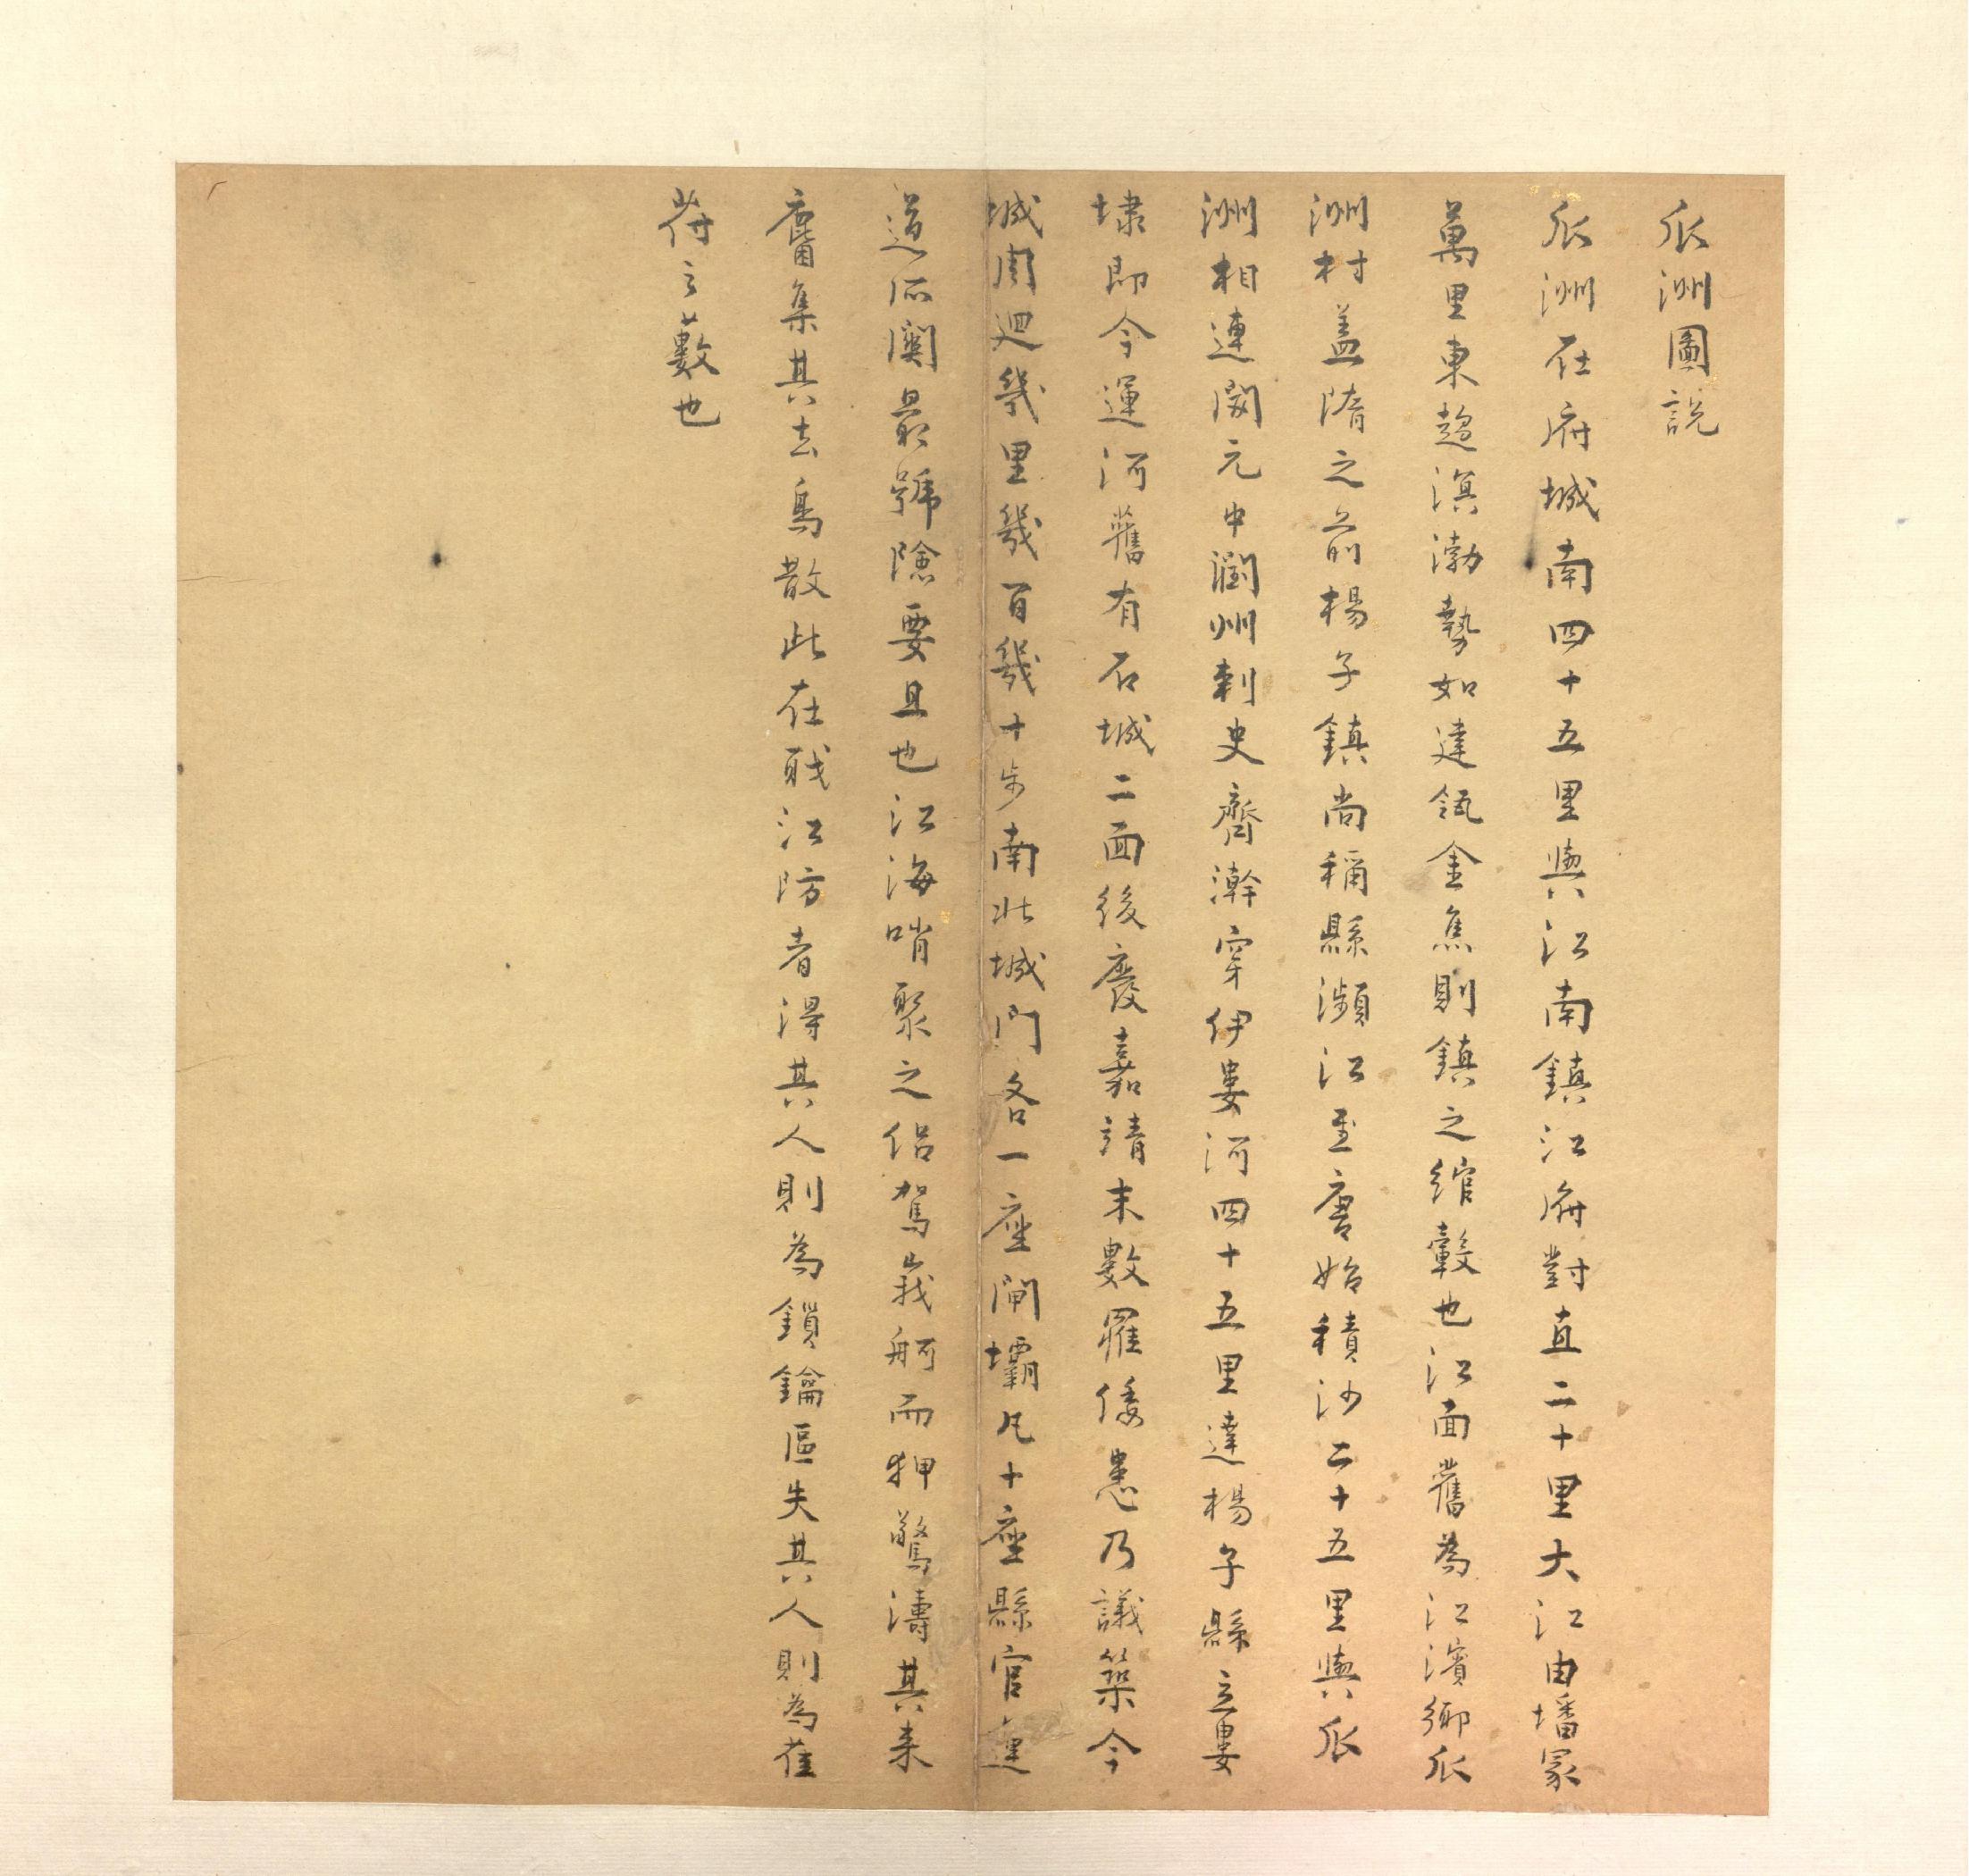 瓜洲圖說
瓜洲在府城南四十五里與江南鎮江府對直二十里大江由墦冢
萬里東趨溟渤勢如建瓴金焦則鎮之綰轂也江面舊為江濱鄉瓜
洲村蓋隋之前楊子鎮尚稱縣瀕江至唐始積沙二十五里與瓜
洲相連開元中潤州刺史齊澣穿伊婁河四十五里達楊子縣立婁
埭即今運河舊有石城二面後廢嘉靖末數罹倭患乃議築今
城周迴幾里幾百幾十步南北城門各一座閘壩凡十座縣官運
道所關最號險要且也江海哨聚之侶駕峩舸而狎驚濤其来
麕集其去鳥散此在職江防者得其人則為鎖鑰區失其人則為萑
苻之藪也